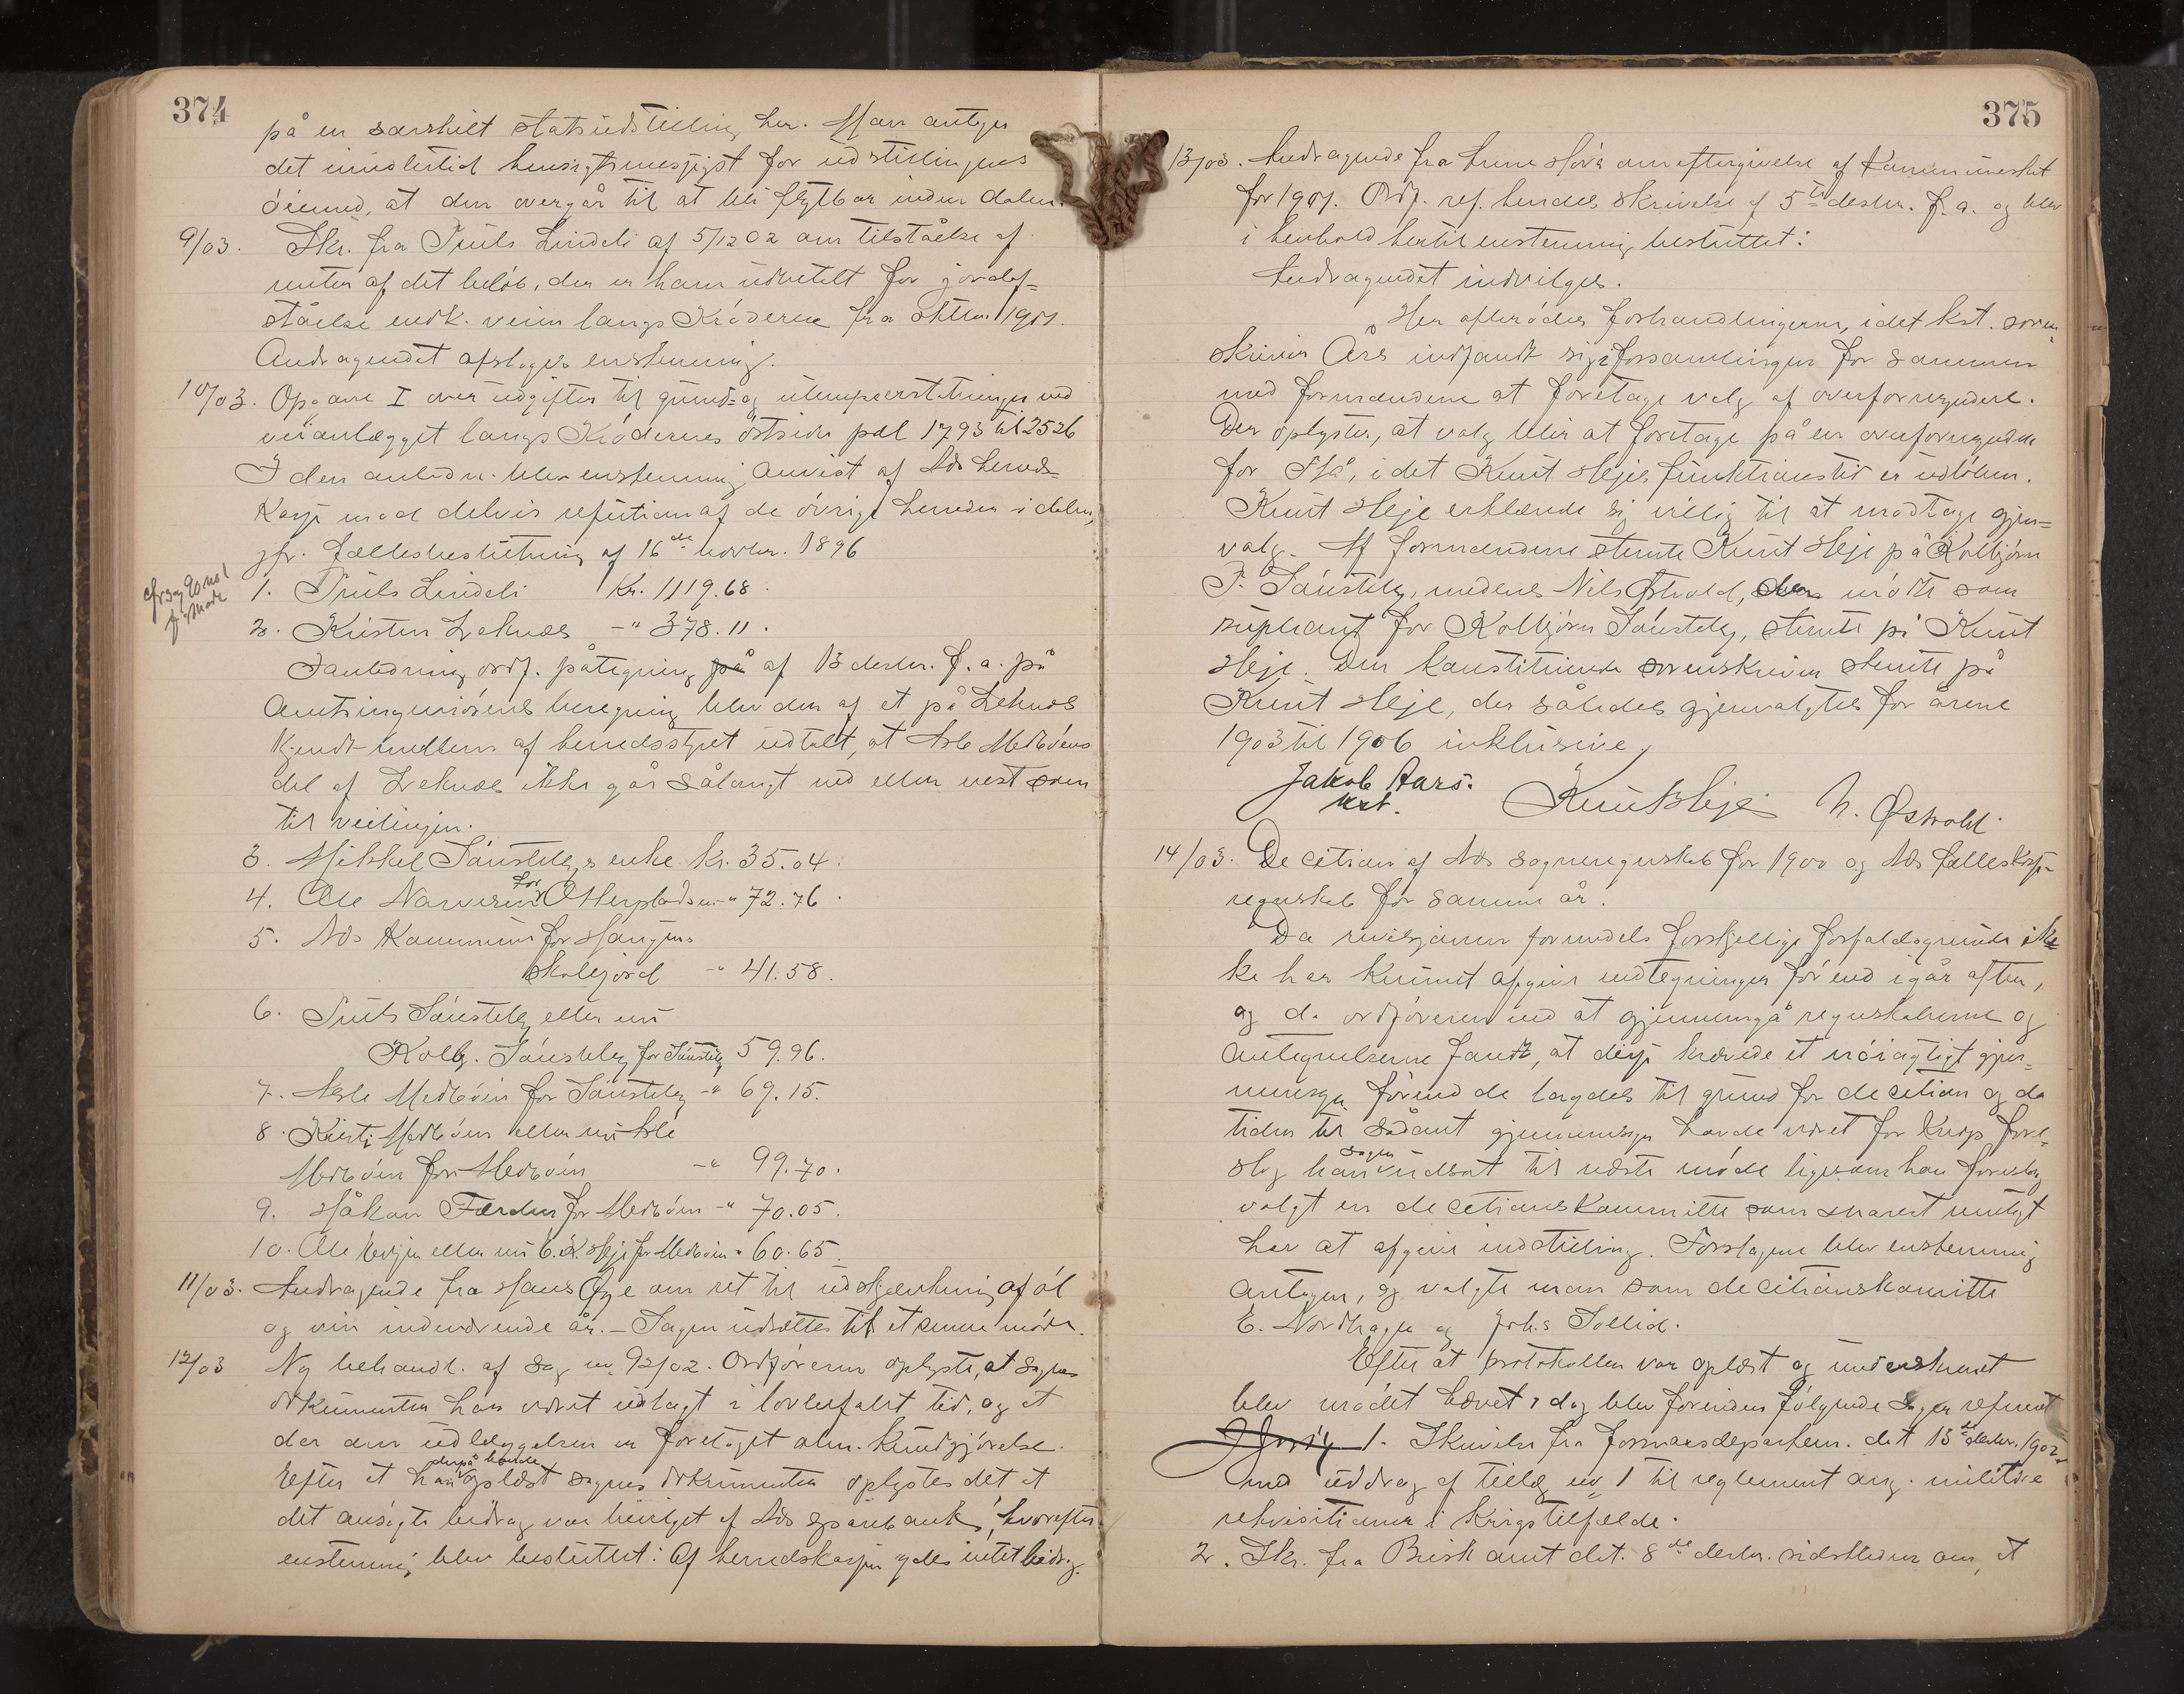 374
på en særskilt statsudstilling her. Man antager
det imidlertid hensigtsmessigst for udstillingens
öiemed, at den overgår til at bli flytbar inden dalen.
9/03. Skr. fra Truls Lindeli af 5/12 02 om tilståelse af
renter af det belöb, der er ham udbetalt for jordaf=
ståelse endk. veien langs Kröderen fra oktbr. 1901.
Andragendet afsloges enstemmig.
10/03. Opgave I over udgifter til grund= og ulempeerstatninger ved
veianlægget langs Kröderens östside pæl 1795 til 2526
I den anledn. blev enstemmig anvist af Ås herreds=
kasse mod delvis refusion af de övrige herreder i dalen,
jfr. fællesbeslutning af 16de novbr. 1896
1. Truls Lindeli Kr. 1119.68.
2. Kristen Leknæs -"- 378.11.
I anledning ordf. påtegning på af 13 decbr. f. a. på
Amtsingeniörens beregning blev den af et på Leknæs
kjendt medlem af herredsstyret udtalt, at Asle Medböens
del af Leknæs ikke går sålangt ned eller vest som
til veilinjen.
3. Mikkel Söustebys enke Kr. 35.04.
4. Ole Narverud for Otterpladsen -"- 72.76.
5. Ås Kommune for Haugens
skolejord -"- 41.58.
6. Truls Söusteby eller nu
Kolb. Söusteby for Söusteby 59.96.
7. Asle Medböen for Söusteby -"- 69.15.
8. Kirsti Medböen eller nu Asle
Medböen for Medböen -"- 99.70.
9. Håkon Færden for Medböen -"- 70.05.
10. Ole eller nu E. K. Heje for Medböen " 60.65.
11/03. Andragende fra Hans Øye om ret til udskjænkning af öl
og vin indeværende år. – Sagen udsættes til et senere möde.
12/03 Ny behandl. af sag no 92/02. Ordföreren oplyste, at sagens
dokumenter har været udlagt i lovbefalet tid, og at
der om udlæggelsen er foretaget alm. kundgjörelse.
Efter at han derpå havde oplæst sagens dokumenter oplystes det at
det ansögte bidrag var bevilget af Ås sparebank, hvorefter
enstemmig blev besluttet: Af herredskassen ydes intet bidrag.
375
13/03. Andragende fra Anne Hovs om eftergivelse af Kommuneskat
for 1901. Ordf. ref. hendes skrivelse af 5te desbr. f. a. og blev
i henhold hertil enstemmig besluttet:
Andragendet indvilges.
Her afbrödes forhandlingerne, idet kst. soren-
skriver Års indfandt sig i forsamlingen for sammen
med formændene at foretage valg af overformyndere.
Der oplystes, at valg blir at foretage på en overformynder
for Flå, idet Knut Hejes funktionstid er udlöben.
Knut Heje erklærede sig villig til at modtage gjen=
valg. Af formændene stemte Knut Heje på Kolbjörn
T. Söusteby, medens Nils Østvold, der mödte som
supleant for Kolbjörn Söusteby, stemte på Knut
Heje. Den konstituerede sorenskriver stemte på
Knut Heje, der således gjenvalgtes for årene
1903 til 1906 inklusive,
Jakob Aars.
kst. Knut Heje N. Østvold
14/03. Decision af Ås sogneregnskab for 1900 og Ås fælleskasse-
regnskab for samme år.
Da revisjonen formedels forskjellige forfaldsgrunde ik
ke har kunnet afgive andtegninger förend igår aften,
og da ordföreren ved at gjennemgå regnskaberne og
antegnelserne fandt, at disse krævede et nöiagtigt gjen=
nemsyn förend de lagdes til grund for decision og da
tiden til sådant gjennemsyn havde været for knap, fore-
slog han sagen udsat til næste möde ligesom han foreslog
valgt en decisionskommitte som snarest muligt
har at afgive indstilling. Forslagene blev enstemmig
antagen, og valgte man som decisionskomitte
E. Nordhagen og Johs Sollid.
Efter at protokollen var oplæst og underskrevet
blev mödet hævet i dag blev forinden fölgende sager referert
1. Skrivelse fra forsvarsdepartem. dat. 13de decbr. 1902
med uddrag af tillæg no 1 til reglement ang. militære
rekvisitioner i krigstilfælde.
2. Skr. fra Busk amt dat. 8de decbr. sidstleden om, at